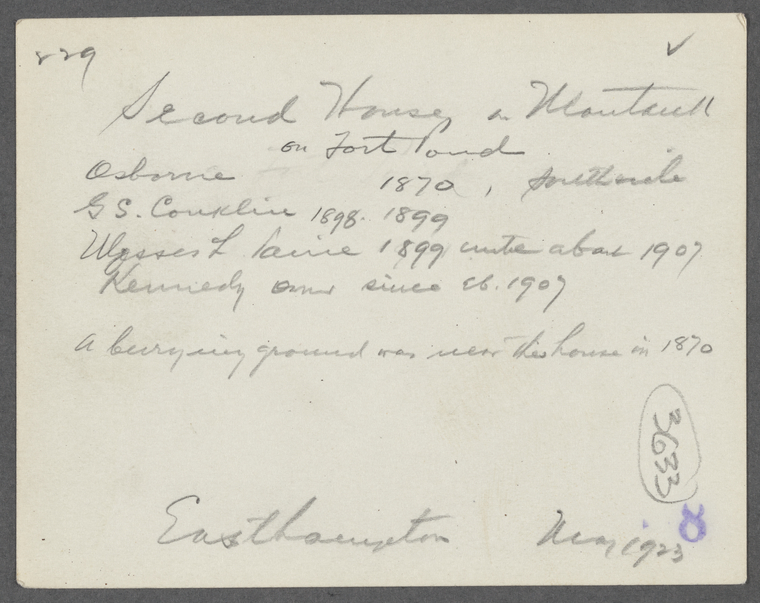 829
Second House, on Montauk
on Fort Pond
Osborne 1870, southside
G S. Conklin 1898-1899
Ulysses L Paine 1899 until about 1907
Kennedy owner since ab. 1907
A burying ground was near this house in 1870
3633
Easthampton May 1923